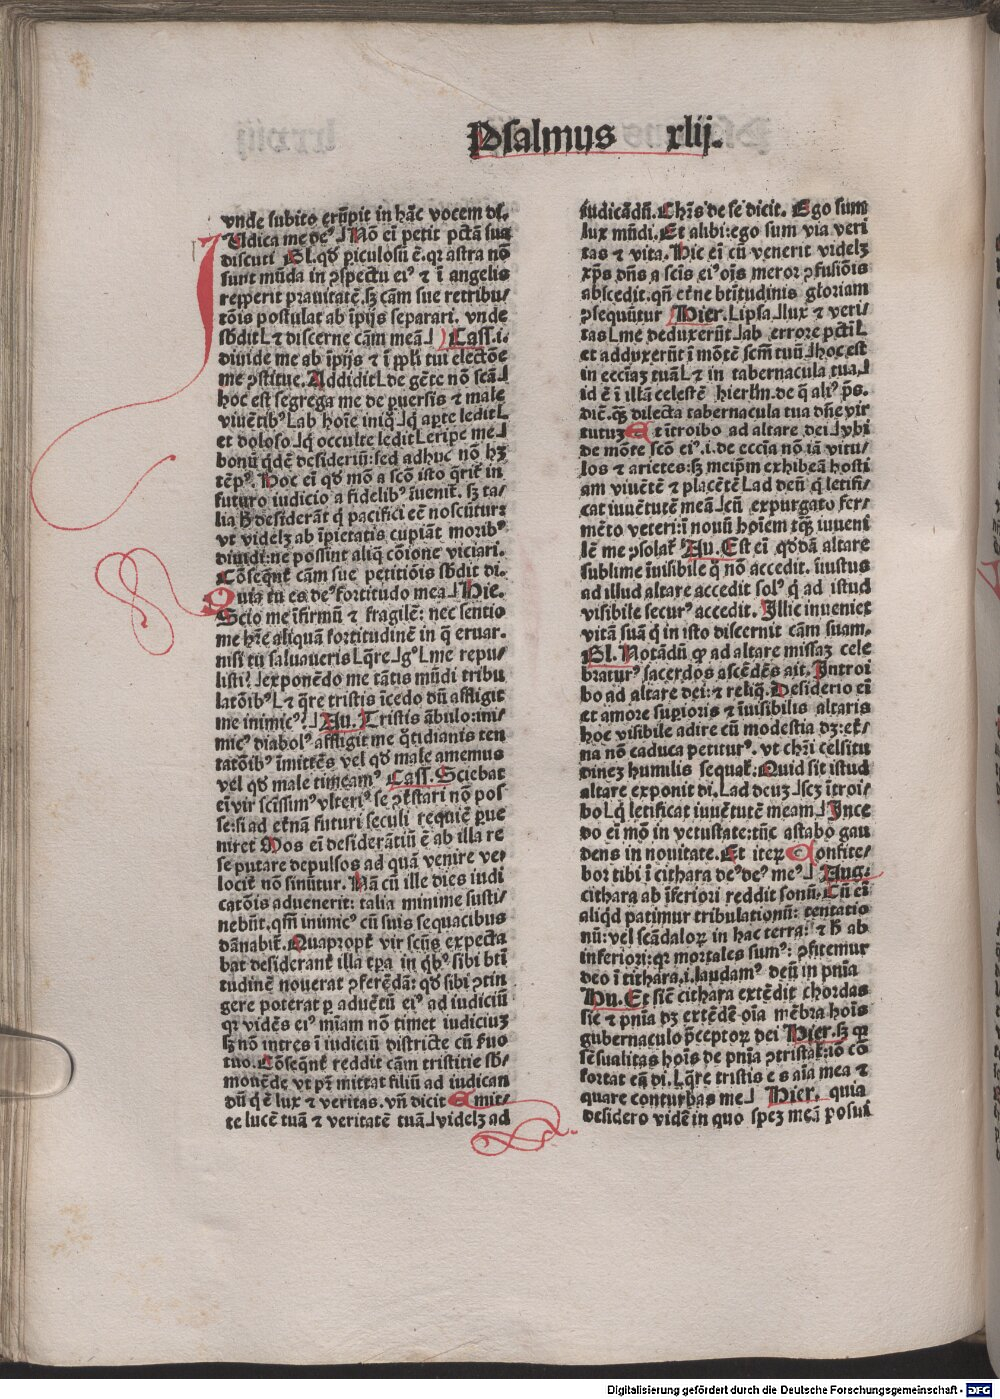 Psalmus xlij.
vnde subito erũpit in hãc vocem di.
IUdica me deꝰ⅃ Nõ ei petit pctãm sua
discuti Gl. qđ piculosũ ē. qr astra nõ
sunt mũda in ꝯspectu eiꝰ ⁊ ĩ angelis
repperit prauitatē. sꝫ cãm sue retribu/
tõis postulat ab ĩpijs separari. vnde
sbđit L ⁊ discerne cãm meã⅃ Cass. i.
diuide me ab ĩpijs ⁊ ĩ pplĩ tui electõe
me ꝯstitue. Addidit L de gēte nõ scã⅃
hoc est segrega me de puersis ⁊ male
viuētibꝰ L ab hoĩe iniq̃⅃ q̃ apte ledit L
et doloso⅃ q̃ occulte ledit L eripe me⅃
bonũ q̃dē desideriũ: sed adhuc nõ hꝫ
tēpꝰ. Hoc ei qđ mõ a scõ isto q̃rit in
futuro iudicio a fidelibꝰ ĩuenit. sꝫ ta/
lia h̃ desiderãt q̃ pacifici eē noscũtur:
vt videlꝫ ab ĩpietatis cupiãt moribꝰ
diuidi: ne possint aliq̃ cõione viciari.
Cõseq̃nt cãm sue petitiõis sbđit di.
Quia tu es deꝰ fortitudo mea⅃ Hie.
Scio me ĩfirmũ ⁊ fragilē: nec sentio
me hr̃e aliquã fortitudinē in q̃ eruar.
nisi tu saluaueris L q̃re⅃ gꝰ L me repu/
listi? ⅃ exponēdo me tãtis mũdi tribu
latõibꝰ L ⁊ q̃re tristis ĩcedo dũ affligit
me inimicꝰ? ⅃ Au. Tristis ãbulo: ini/
micꝰ diabolꝰ affligit me q̃tidianis ten
tatõibꝰ ĩmittēs vel qđ male amemus
vel qđ male timeamꝰ Cass. Sciebat
ei vir scissimꝰ vlteriꝰ se ꝯtristari nõ pos
se: si ad etnã futuri seculi requiē pue
niret Mos ei desiderãtiũ ē ab illa re
se putare depulsos ad quã venire ve/
lociē nõ sinũtur. Nã cũ ille dies iudi
catõis aduenerit: talia minime susti/
nebũt. qm̃ inimicꝰ cũ suis sequacibus
dãnabit. Quapropt vir scũs expecta
bat desiderant illa tp̃a in q̃bꝰ sibi btĩ
tudinē nouerat ꝯferēdã: qđ sibi ꝯtin
gere poterat p aduētũ eiꝰ ad iudiciũ
qr vidēs eiꝰ mĩam nõ timet iudiciuꝫ
sꝫ nõ intres ĩ iudiciũ districte cũ fuo
tuo. Cõseq̃nt reddit cãm tristitie sb/
mouēde vt pr̃ mittat filiũ ad iudican
dũ q̃ ē lux ⁊ veritas. vñ dicit Emit/
te lucē tuã ⁊ veritatē tuã⅃ videlꝫ ad
iudicãdũ. Chr̃s de se dicit. Ego sum
lux mũdi. Et alibi: ego sum via veri
tas ⁊ vita. Hic ei cũ venerit videlꝫ
xp̃s dñs a scis eiꝰ oĩs meror ꝯfusiõis
abscedit. qñ etne btĩtudinis gloriam
ꝯsequũtur Hier. L ipsa⅃ lux ⁊ veri/
tas L me deduxerũt⅃ ab errore pcti L
et adduxerũt ĩ mõtē scm̃ tuũ⅃ hoc est
in ecciaꝫ tuã L ⁊ in tabernacula tua⅃
id ē ĩ illã celestē hierlm̃. de q̃ aliꝰ p̃s.
dic̃. q̃ꝫ dilecta tabernacula tua dñe vir
tutuꝫ Et ĩtroibo ad altare dei⅃ ybi
de mõte scõ eiꝰ. i. de eccĩa nõ iã vitu/
los ⁊ arietes: sꝫ meip̃m exhibeã hosti
am viuētē ⁊ placētē L ad deũ q̃ letifi/
cat iuuētutē meã⅃ cũ expurgato fer/
mēto veteri: ĩ nouũ hoĩem tq̃ꝫ iuueni
lē me ꝯsolat Au. Est ei qđdã altare
sublime ĩuisibile q̃ nõ accedit. iiustus
ad illud altare accedit solꝰ q̃ ad istud
visibile securꝰ accedit. Illic inueniet
vitã suã q̃ in isto discernit cãm suam.
Gl. Notãdũ ꝙ ad altare missaꝫ cele
braturꝰ sacerdos ascēdēs ait. Introi
bo ad altare dei: ⁊ reliq̃. Desiderio ei
et amore supioris ⁊ ĩuisibilis altaris
hoc visibile adire cũ modestia dꝫ: et/
na nõ caduca petiturꝰ. vt chr̃i celsitu
dineꝫ humilis sequat: Quid sit istud
altare exponit di. L ad deuꝫ⅃ scꝫ ĩtroi/
bo L q̃ letificat iuuētutē meam⅃ Ince
do ei mõ in vetustate: tũc astabo gau
dens in nouitate. Et iteꝝ Confite/
bor tibi ĩ cithara deꝰ deꝰ meꝰ⅃ Aug.
cithara ab ĩferiori reddit sonũ. Cũ ei
aliq̃d patimur tribulationũ: tentatio
nũ: vel scãdaloꝝ in hac terra: ⁊ h̃ ab
inferiori: qr mortales sumꝰ: ꝯfitemur
deo ĩ cithara. i. laudamꝰ deũ in pñia
Hu. Et sicũ cithara extēdit chordas
sic ⁊ pñia dꝫ extēdē oĩa mēbra hoĩs
gubernaculo pceptoꝝ dei Hier. sꝫ qr
sēsualitas hoĩs de pñia ꝯtristat: iõ cõ
fortat eã di. L q̃re tristis es aĩa mea ⁊
quare conturbas me⅃ Hier. quia
desidero vidē in quo speꝫ meã posui
Digitalisierung gefördert durch die Deutsche Forschungsgemeinschaft - DFG